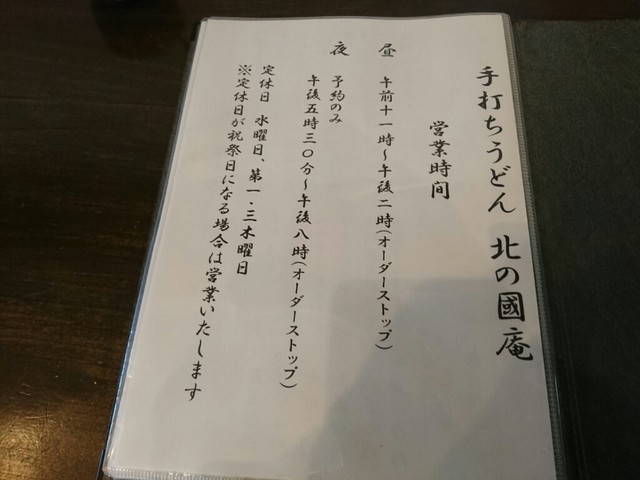 手打ちうどん 北の國庵
営業時間
昼 午前十一時～午後二時(オーダーストップ)
夜 予約のみ
午後五時三〇分～午後八時(オーダーストップ)
定休日 水曜日、第一・三木曜日
※定休日が祝祭日になる場合は営業いたします